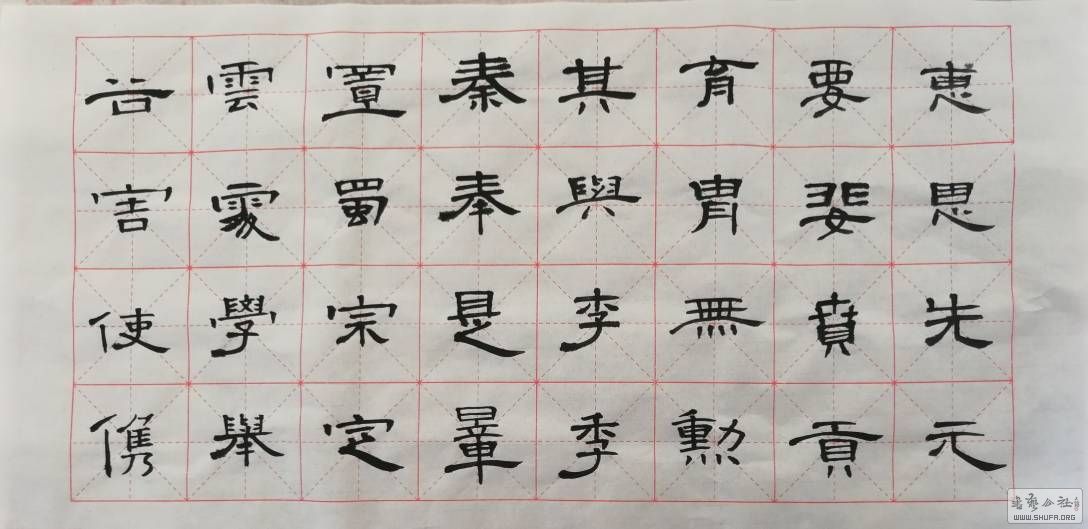 惠思先元
要婓賁貢
育胄無勳
其與李季
秦奉是暈
置蜀宗定
雲學舉
害使儁
书艺公社
WWW.SHUFA.ORG